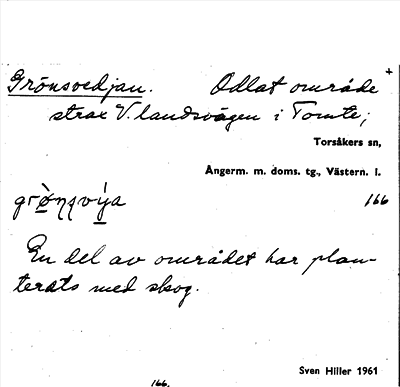 Grönsvedjan. Odlat område +
strax V. landsvägen i Tomte;
Torsåkers sn,
Ångerm. m. doms. tg., Västern. l.
166
En del av området har plan-
terats med skog.
Sven Hiller 1961
166.